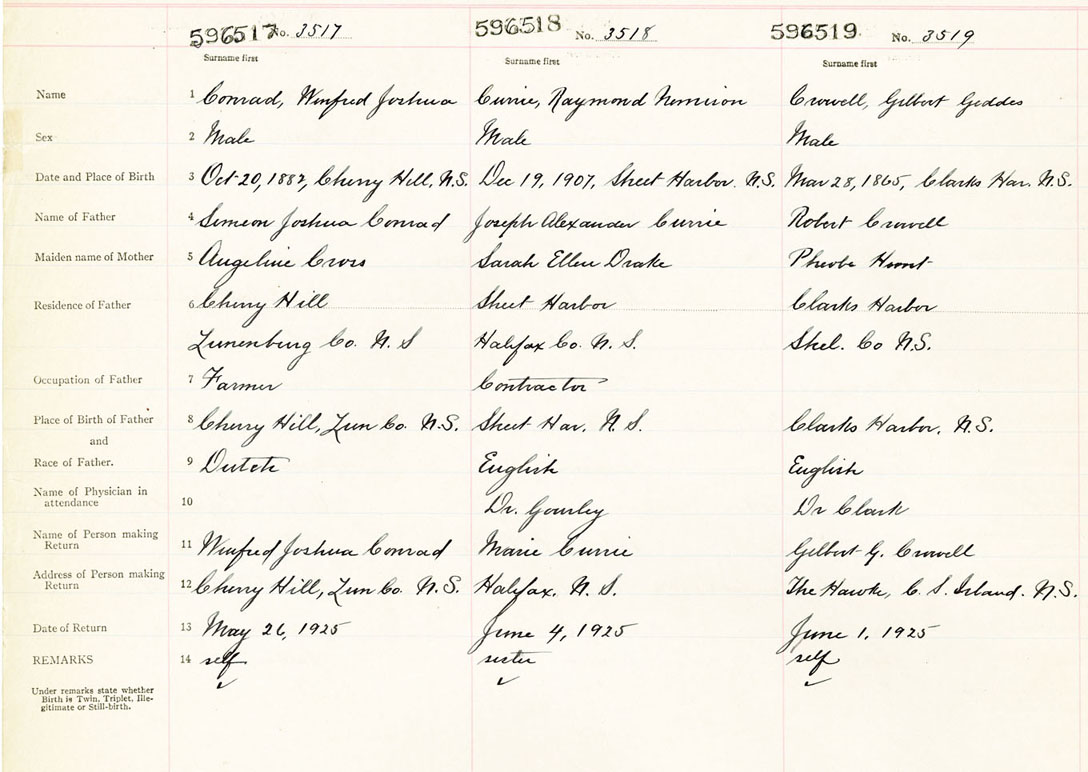 596517 No. 3517 596518 No. 3518 596519 No. 3519
Surname first Surname first Surname first
Name 1 Conrad, Winfred Joshua Currie, Raymond Crowell, Gilbert Geddes
Sex 2 Male Male Male
Date and Place of Birth 3 Oct 20, 1887, Cherry Hill, N.S. Dec 19, 1907, Sheet Harbor. N.S. Mar 28, 1865, Clarks Har. N.S.
Name of Father 4 Simeon Joshua Conrad Joseph Alexander Currie Robert Crowell
Maiden name of Mother 5 Angeline Cross Sarah Ellen Drake Pheobe
Residence of Father 6 Cherry Hill Sheet Harbor Clarks Harbor
Lunenburg Co. N. S Halifax Co. N. S. Shel. Co N.S.
Occupation of Father 7 Farmer Contractor
Place of Birth of Father 8 Cherry Hill, Lun Co. N.S. Sheet Har. N. S. Clarks Harbor, N.S.
and
Race of Father. 9 Dutch English English
Name of Physician in
attendance 10 Dr. Gourley Dr Clark
Name of Person making
Return 11 Winfred Joshua Conrad Marie Currie Gilbert G. Crowell
Address of Person making
Return 12 Cherry Hill, Lun Co. N.S. Halifax, N. S. The Hawke, C. S. Island. N.S.
Date of Return 13 May 26, 1925 June 4, 1925 June 1, 1925
REMARKS 14 self sister self
Under remarks state whether
Birth is Twin, Triplet, Ille-
gitimate or Still-birth.